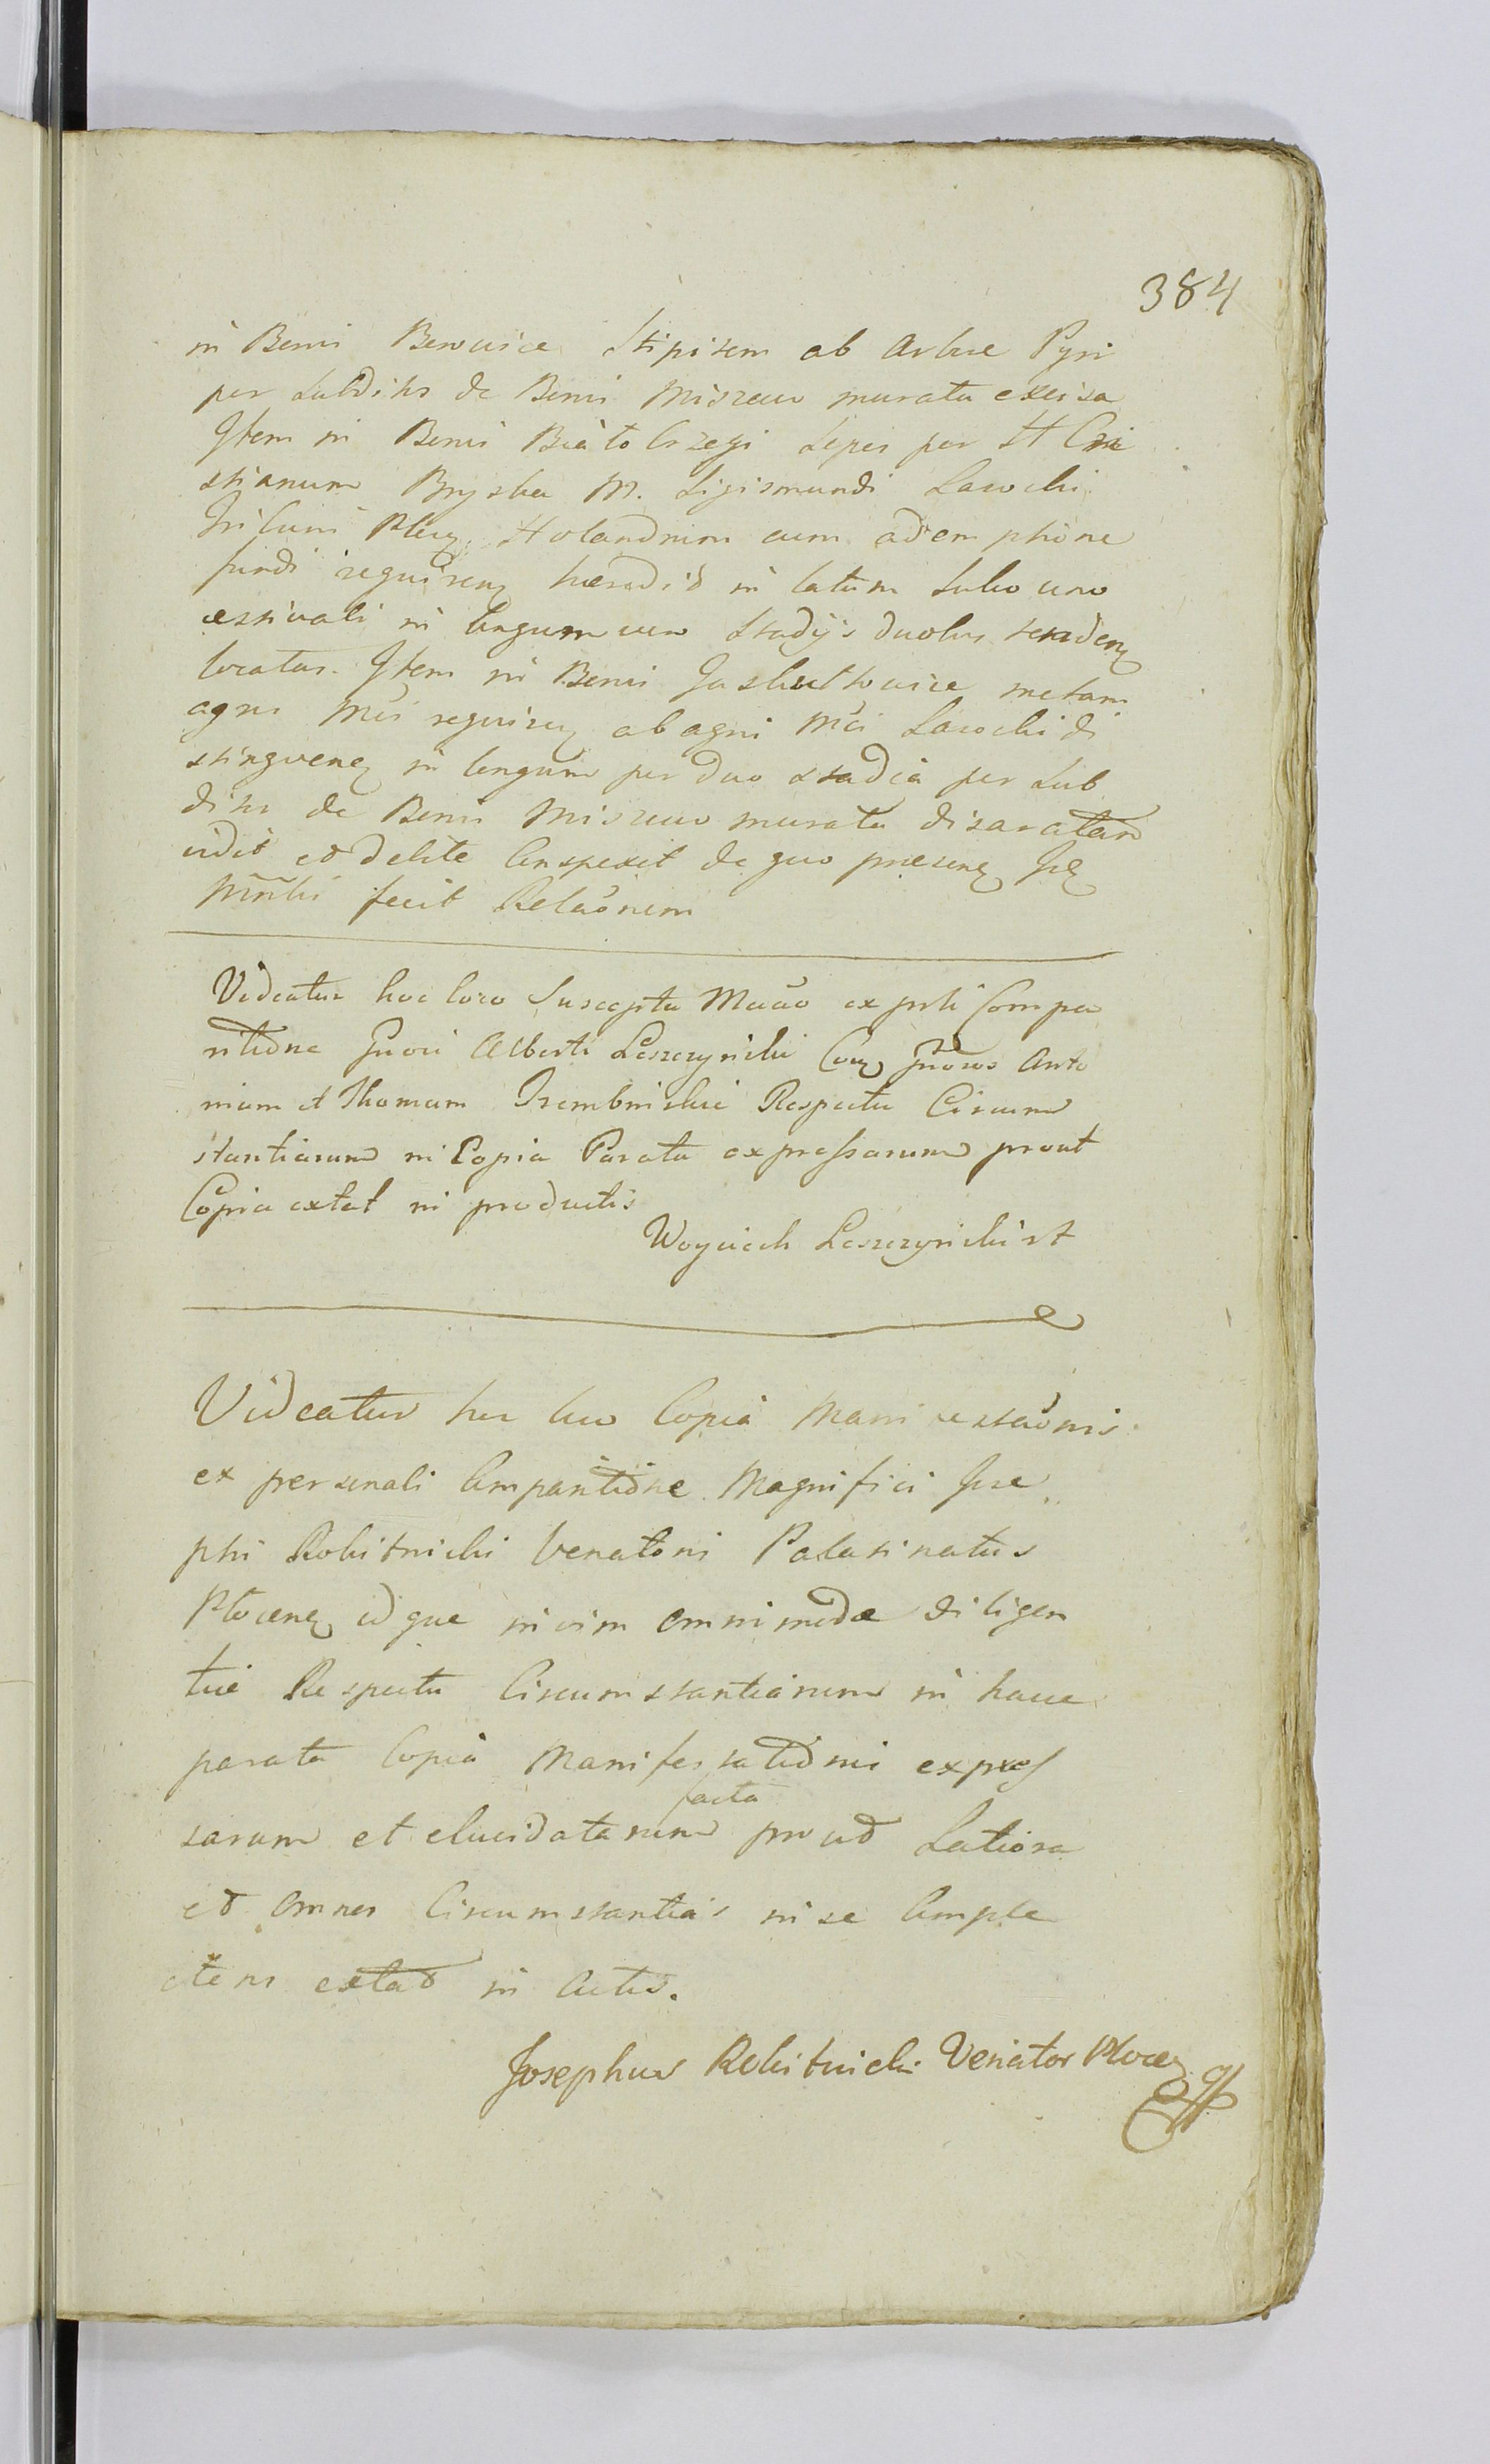 384
in Bonis Berowice Stipitem ab Arbore Pyri
per Subditos de Bonis Miszewo murata excisa
Item in Bonis Białobrzegi Sepes per H Cri
stianum Bryska M. Sigismundi Lasocki
Tribuni Holandrum cum ademptione
fundi requiren haeredit in latum Sulco uno
aestivali in longum vero Stadijs duobus tenden
locatas. Item in Bonis metam
agros Mci requiren ab agris Mci Lasocki di
stingven in longum per duo stadia per Sub
ditos de Bonis Miszewo murata disaratam
vidit et debite conspexit de quo praesens
fecit Relaonem
Videatur hoc loco Suscepta Macao ex psli Compa
ritione Gnosi Alberti Leszczynski Con Gnosos Anto
nium et Thomam Trembinskie Respectu Circum
stantiarum in Copia Parata expressarum prout
Copia extat in productis
Woyciech Leszczynski st
Videatur hoc loco Copia Manifestaonis
ex personali Comparitione Magnifici Jose
phi Rokitnicki Venatoris Palatinatus
Plocen idque in vim omnimodae diligen
tiae Respectu Circumstantiarum in hacce
parata Copia Manifestationis expres
facta
sarum et elucidatarum prout Latiora
et omnes Circumstantias in se Comple
ctens extat in Actis.
Josephus Rokitnicki Venator Plocen